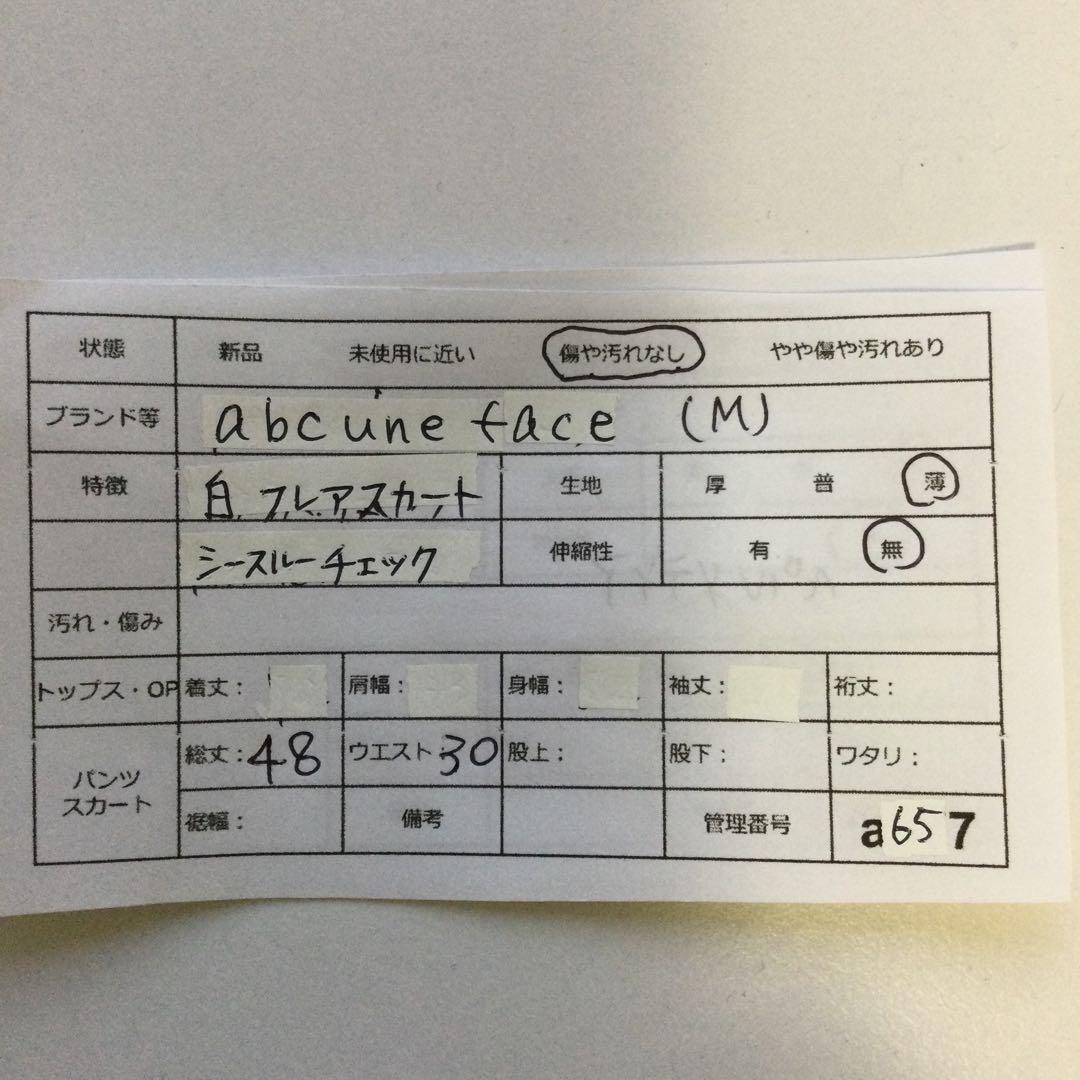 状態 新品 未使用に近い 傷や汚れなし やや傷や汚れあり
ブランド等 abc une face (M)
特徴 白.フレアスカート 生地 厚 普 薄
シースルーチェック 伸縮性 有 無
汚れ・傷み
トップス・OP 着丈： 肩幅： 身幅： 袖丈： 裄丈：
パンツ スカート 総丈：48 ウエスト30 股上： 股下： ワタリ：
裾幅： 備考 管理番号 a657